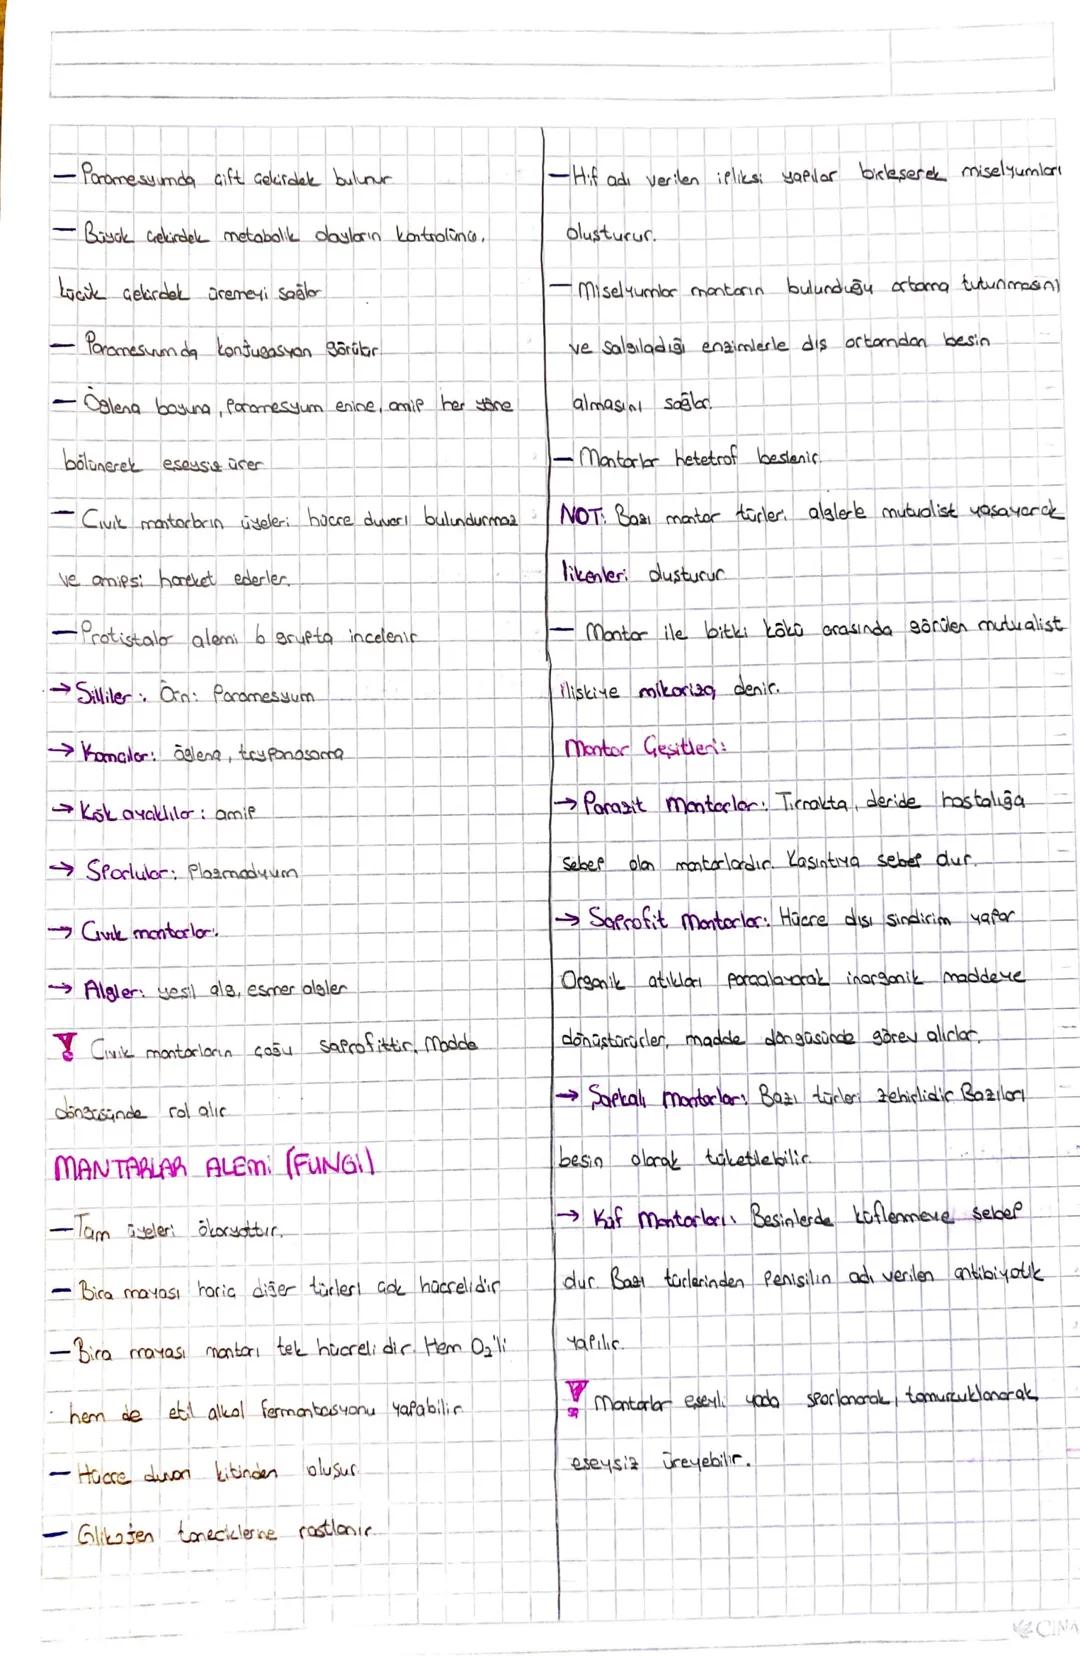 — Paramesyumda çift çekirdek bulunur
— Büyük çekirdek metabolik olayların kontrolünü,
küçük çekirdek üremeyi sağlar
— Paramesyumda konjugasyon görülür.
— Öglena boyuna, paramesyum enine, amip her yöne
bölünerek eşeysiz ürer
— Cıvık mantarların üyeleri hücre duvarı bulundurmaz
ve amipsi hareket ederler.
— Protistalar alemi 6 grupta incelenir
→ Silliler: Örn: Paramesyum
→ Kamçılar: öglena, trypanosoma
→ Kök ayaklılar: amip
→ Sporlular: Plazmodyum
→ Cıvık mantarlar:
→ Algler: yeşil alg, esmer algler
! Cıvık mantarların çoğu saprofittir. Madde
döngüsünde rol alır
MANTARLAR ALEMİ (FUNGİ)
— Tam üyeleri ökaryottur.
— Bira mayası hariç diğer türleri çok hücrelidir
— Bira mayası mantarı tek hücrelidir. Hem O₂'li
hem de etil alkol fermantasyonu yapabilir
— Hücre duvarı kitinden oluşur.
— Glikojen taneciklerine rastlanır.
— Hif adı verilen ipliksi yapılar birleşerek miselyumları
oluşturur.
— Miselyumlar mantarın bulunduğu ortama tutunmasını
ve salgıladığı enzimlerle dış ortamdan besin
almasını sağlar.
— Mantarlar hetetrof beslenir.
NOT: Bazı mantar türleri alglerle mutualist yaşayarak
likenleri oluşturur
— Mantar ile bitki kökü arasında görülen mutualist
ilişkiye mikoriza denir.
Mantar Çeşitleri:
→ Parazit Mantarlar: Tırnakta, deride hastalığa
sebep olan mantarlardır. Kaşıntıya sebep olur.
→ Saprofit Mantarlar: Hücre dışı sindirim yapar
Organik atıkları parçalayarak inorganik maddeye
dönüştürürler, madde döngüsünde görev alırlar.
→ Şapkalı Mantarlar: Bazı türleri zehirlidir Bazıları
besin olarak tüketilebilir.
→ Küf Mantarları: Besinlerde küflenmeye sebep
olur. Bazı türlerinden Penisilin adı verilen antibiyotik
yapılır.
! Mantarlar eşeyli yada sporlanarak, tomurcuklanarak
eşeysiz üreyebilir.